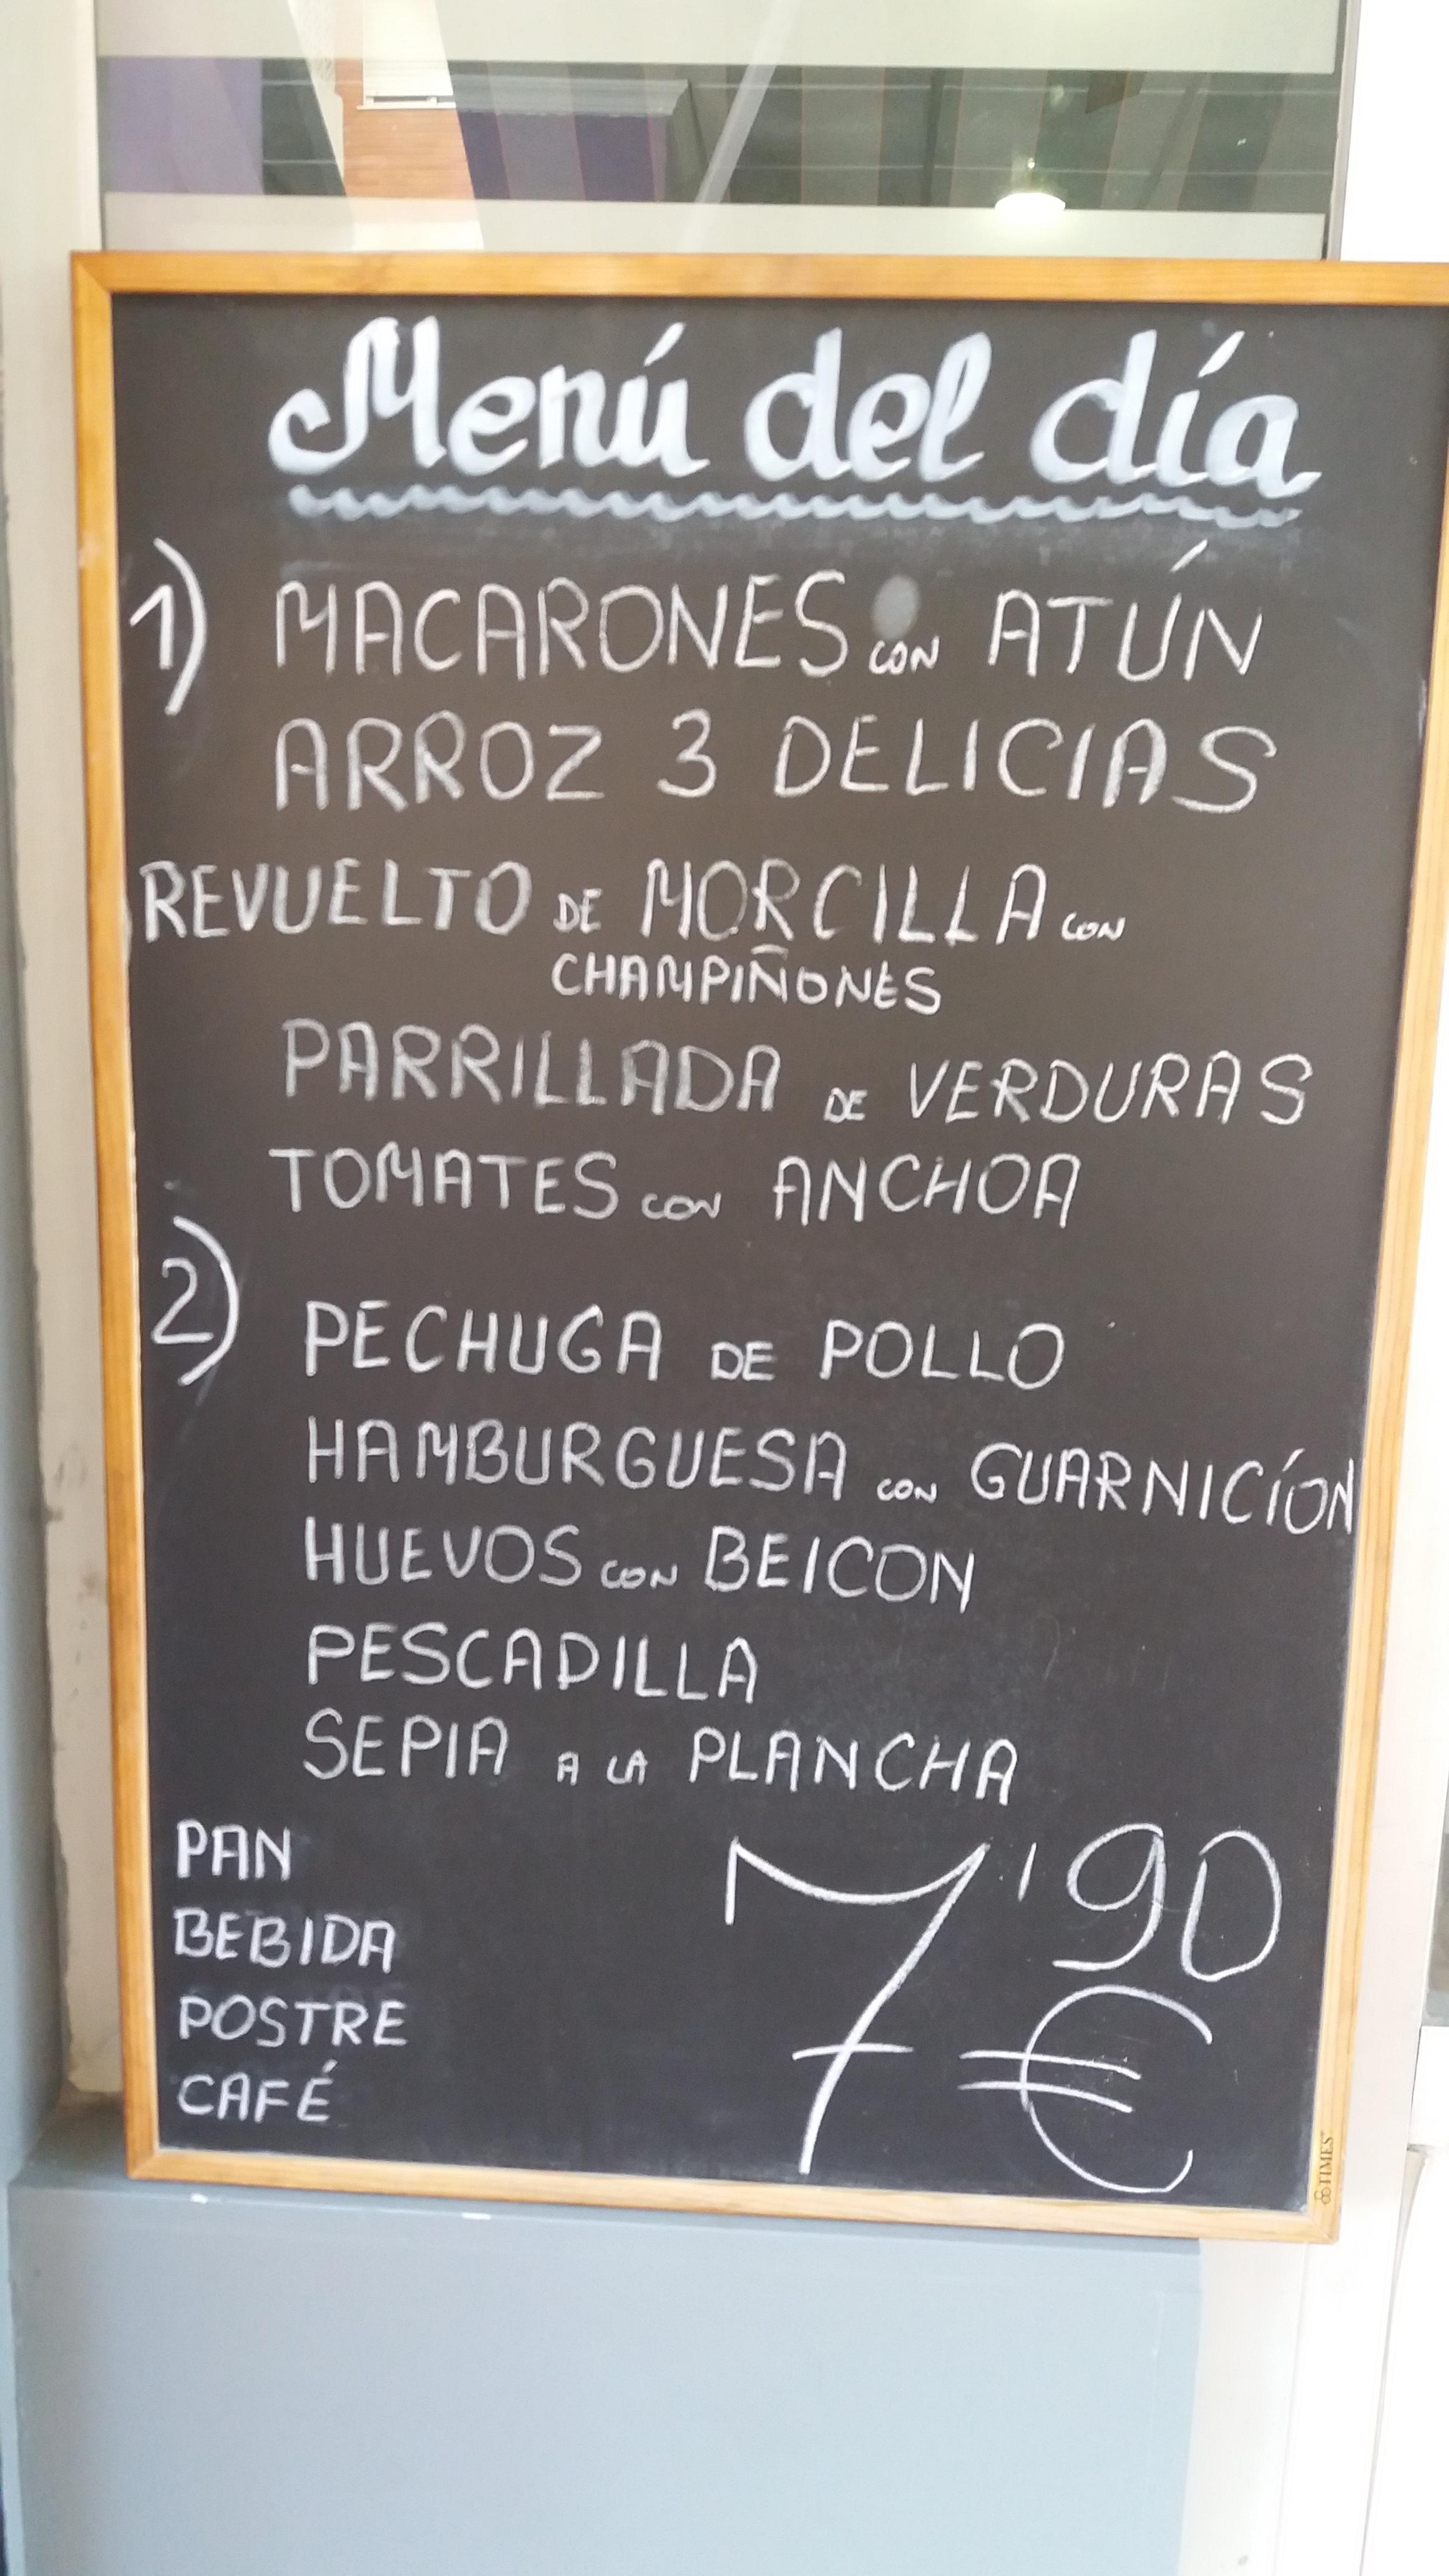 Menú del día
1) MACARONES CON ATÚN
ARROZ 3 DELICIAS
REVUELTO DE MORCILLA CON
CHAMPIÑONES
PARRILLADA DE VERDURAS
TOMATES CON ANCHOA
2) PECHUGA DE POLLO
HAMBURGUESA CON GUARNICÍON
HUEVOS CON BEICON
PESCADILLA
SEPIA A LA PLANCHA
PAN
BEBIDA
POSTRE
CAFÉ
7'90
€
TIMES